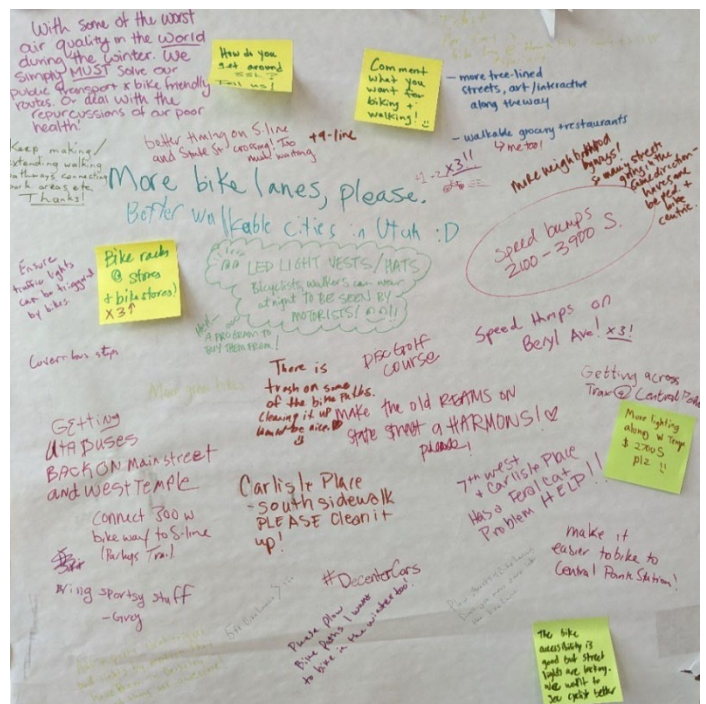 With some of the worst
air quality in the World
during the winter. We
simply MUST solve our
public transport & bike friendly
routes. Or deal with the
repurcussions of our poor
health!
How do you
get around
SSL?
Tell us!
Comment
what you
want for
biking +
walking!
- more tree-lined
streets, art/interactive
along the way
- walkable grocery + restaurants
me too!
Keep making/
extending walking
pathways connecting
park areas, etc.
Thanks!
better timing on S-line
and State St. crossing! Too
much waiting
+9-line
x3!!
More bike lanes, please.
Better walkable cities in Utah :D
make neighborhood
byways!
so main streets
going in the
same direction -
have one
be ped. +
bike
centric.
Speed bumps
2100 - 3900 S.
Ensure
traffic lights
can be triggered
by bikes
Bike racks
@ stores
+ bike stores!
x3↑
LED LIGHT VESTS/HATS
Bicyclists, walkers can wear
at night TO BE SEEN BY
MOTORISTS!
A PROGRAM TO
BUY THEM FROM!
Cover bus stops
There is
trash on some
of the bike paths.
Cleaning it up
would be nice.
Disc Golf
course
Speed Humps on
Beryl Ave! x3!
Getting across
Trax @ Central Pointe
Make the old REAMS ON
STATE STREET a HARMONS!
please!
More lighting
along W Temp
& 2700 S
plz
GETTING
UTA BUSES
BACK ON Main street
and WEST TEMPLE
Carlisle Place
- south sidewalk
PLEASE Clean it
up!
7th west
+ Carlisle Place
Has a Feral Cat
Problem HELP!!
Connect 300 W
bike way to S-line
(Parleys Trail
make it
easier to bike to
Central Pointe Station!
Bring sportsy stuff
- Grey
#DecenterCars
Please plow
Bike Paths I want
to bike in the winter too!
The bike
accessibility is
good but street
lights are lacking.